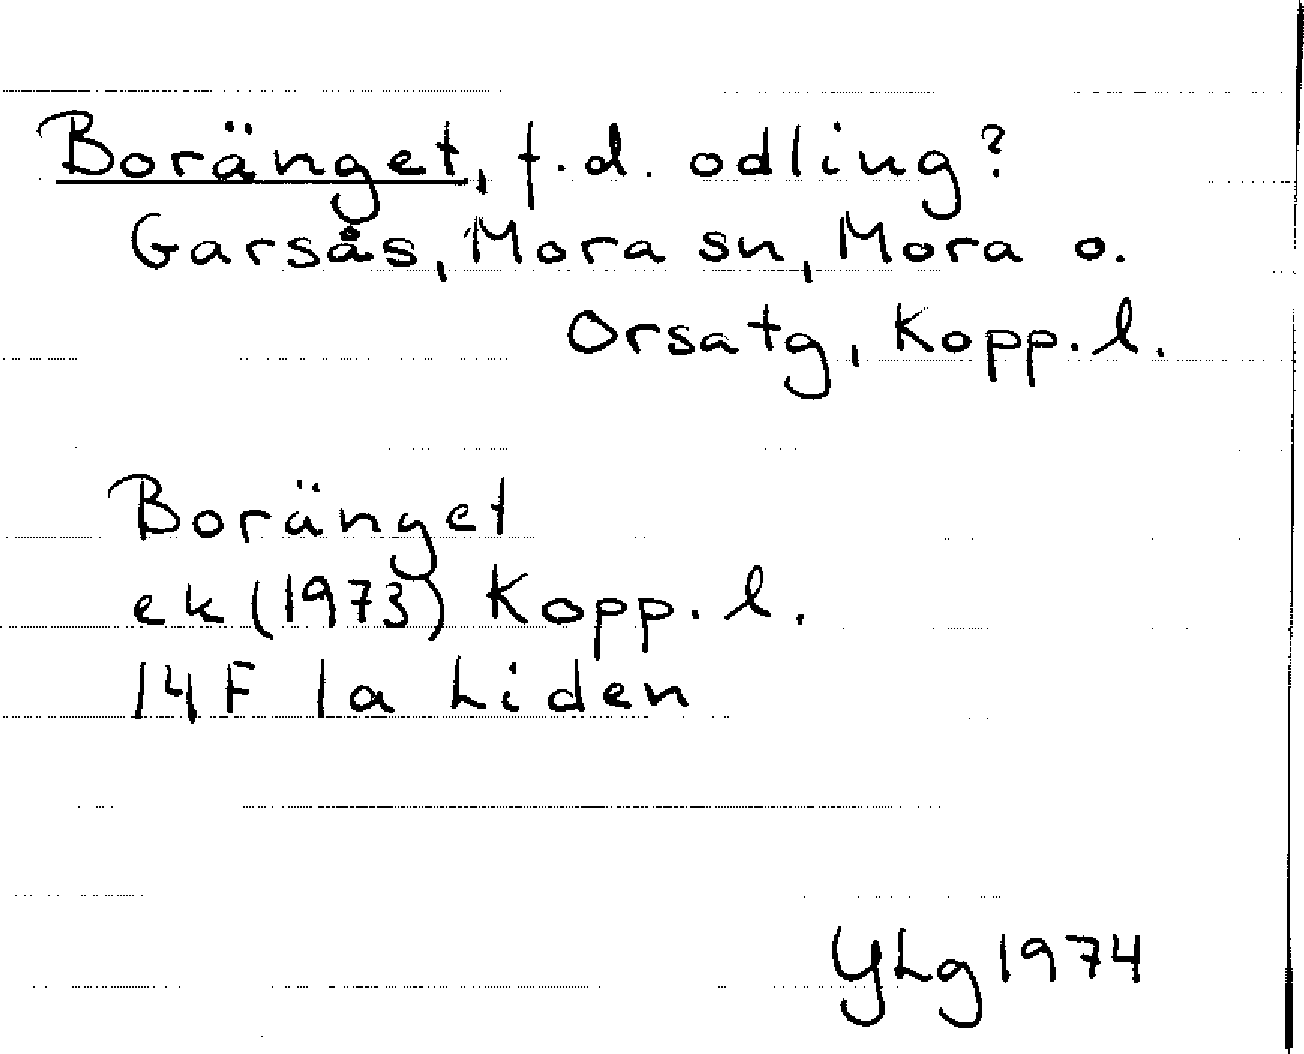 Boränget, f.d. odling?
Garsås, Mora sn, Mora o.
Orsatg, Kopp. l.
Boränget
ek (1973) Kopp. l.
14F 1a Liden
YLg 1974